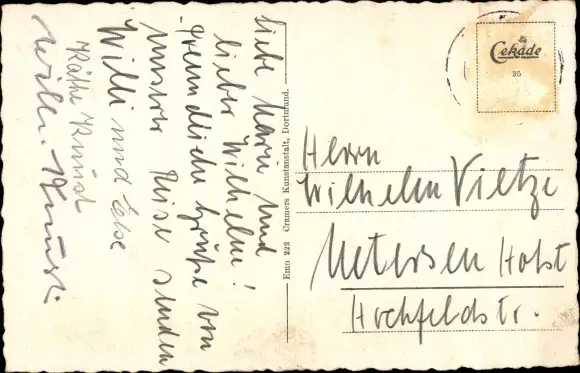 Liebe Marie und
lieber Wilhelm!
freundliche Grüße von
unsrer Reise senden
Willi und Else
Käthe Knust
Willi Knust.
Emn 222 Cramers Kunstanstalt, Dortmund.
Cekade
35
Herrn
Wilhelm Vietze
Uetersen Holst
Hochfeldstr.